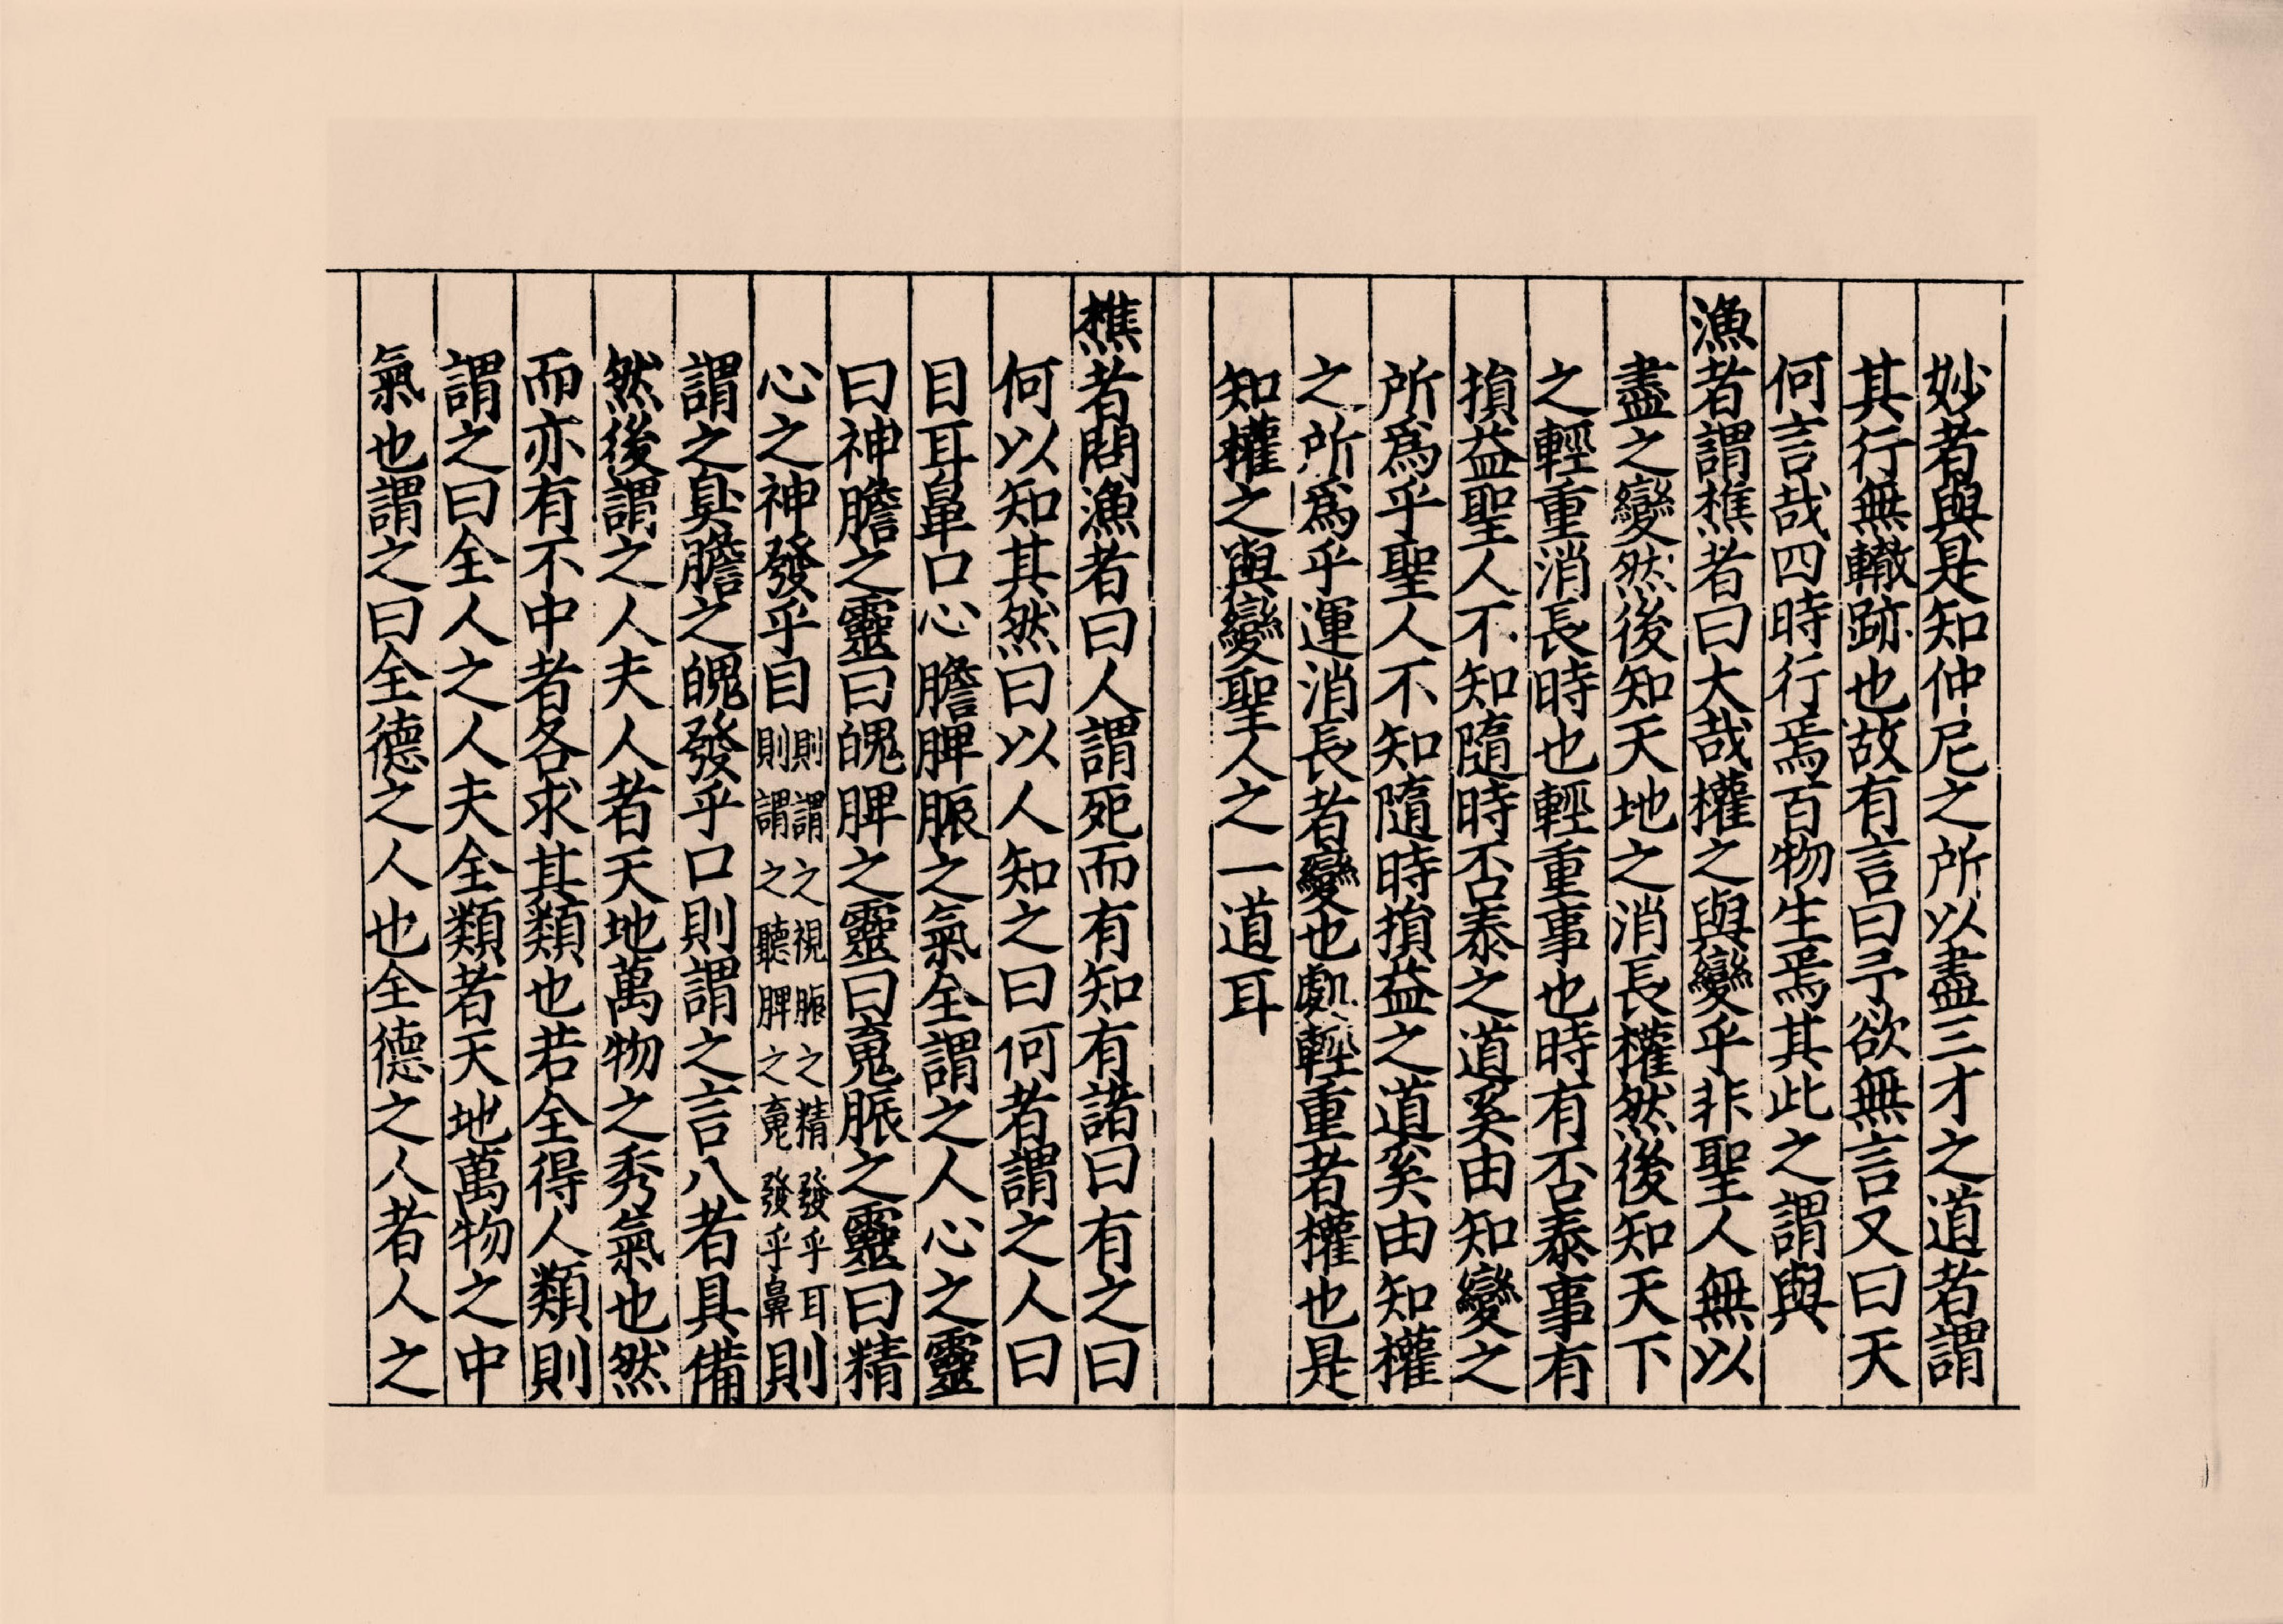 妙者與是知仲尼之所以盡三才之道者謂
其行無轍跡也故有言曰予欲無言又曰天
何言哉四時行焉百物生焉其此之謂與
漁者謂樵者曰大哉權之與變乎非聖人無以
盡之變然後知天地之消長權然後知天下
之輕重消長時也輕重事也時有否泰事有
損益聖人不知隨時否泰之道奚由知變之
所爲乎聖人不知隨時損益之道奚由知權
之所爲乎運消長者變也處輕重者權也是
知權之與變聖人之一道耳
樵者問漁者曰人謂死而有知有諸曰有之曰
何以知其然曰以人知之曰何者謂之人曰
目耳鼻口心膽脾脤之氣全謂之人心之靈
曰神膽之靈曰魄脾之靈曰䰟脤之靈曰精
心之神發乎目則謂之視脤之精發乎耳則謂之聽脾之䰟發乎鼻則
謂之臭膽之魄發乎口則謂之言八者具備
然後謂之人夫人者天地萬物之秀氣也然
而亦有不中者各求其類也若全得人類則
謂之曰全人之人夫全類者天地萬物之中
氣也謂之曰全德之人也全德之人者人之